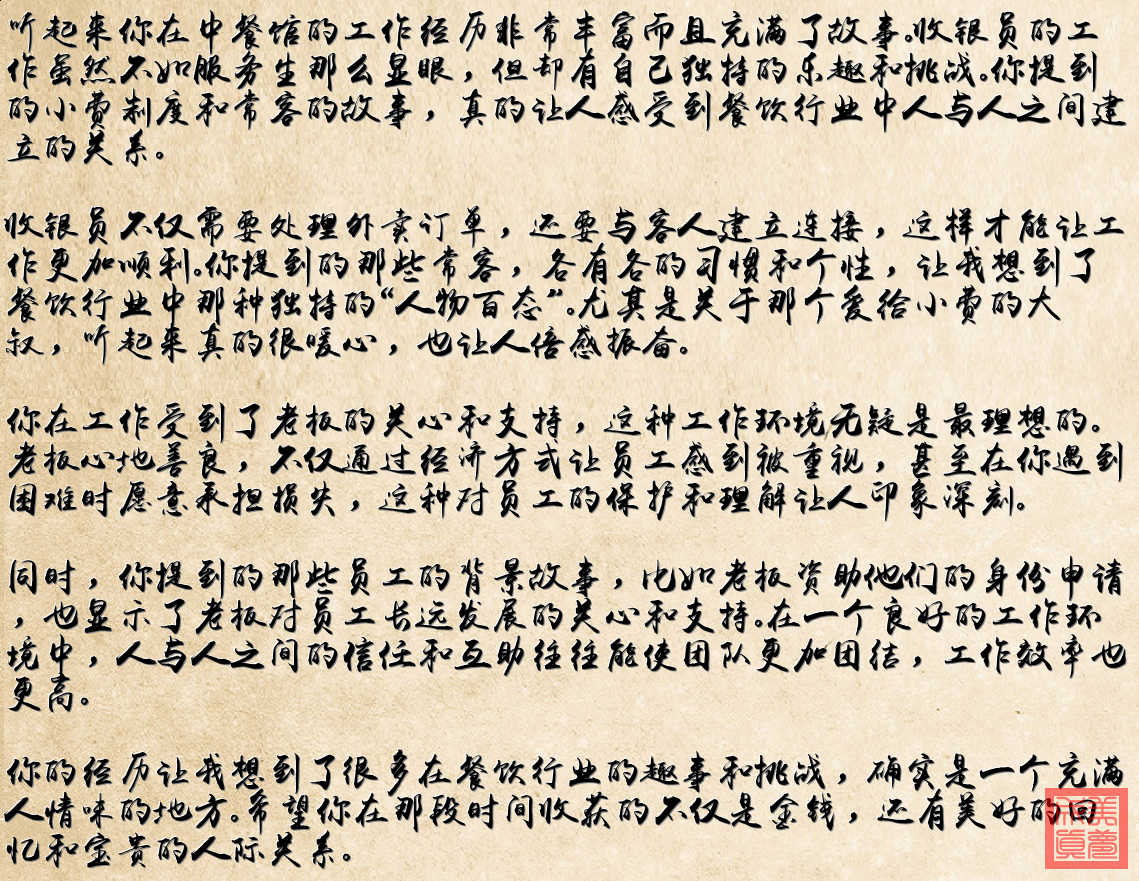 听起来你在中餐馆的工作经历非常丰富而且充满了故事。收银员的工
作虽然不如服务生那么显眼，但却有自己独特的乐趣和挑战。你提到
的小费制度和常客的故事，真的让人感受到餐饮行业中人与人之间建
立的关系。
收银员不仅需要处理外卖订单，还要与客人建立连接，这样才能让工
作更加顺利。你提到的那些常客，各有各的习惯和个性，让我想到了
餐饮行业中那种独特的“人物百态”。尤其是关于那个爱给小费的大
叔，听起来真的很暖心，也让人倍感振奋。
你在工作受到了老板的关心和支持，这种工作环境无疑是最理想的。
老板心地善良，不仅通过经济方式让员工感到被重视，甚至在你遇到
困难时愿意承担损失，这种对员工的保护和理解让人印象深刻。
同时，你提到的那些员工的背景故事，比如老板资助他们的身份申请
，也显示了老板对员工长远发展的关心和支持。在一个良好的工作环
境中，人与人之间的信任和互助往往能使团队更加团结，工作效率也
更高。
你的经历让我想到了很多在餐饮行业的趣事和挑战，确实是一个充满
人情味的地方。希望你在那段时间收获的不仅是金钱，还有美好的回
忆和宝贵的人际关系。